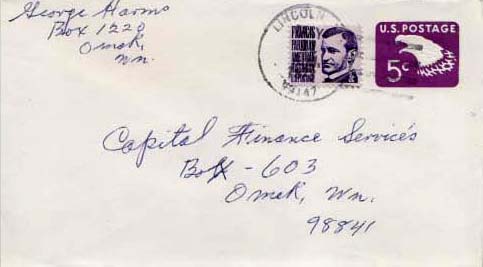 George Harms
Box 1220
Omak,
Wn.
LINCOLN
U.S. POSTAGE
5c
Capital Finance Services
Box - 603
Omak, Wn.
98841